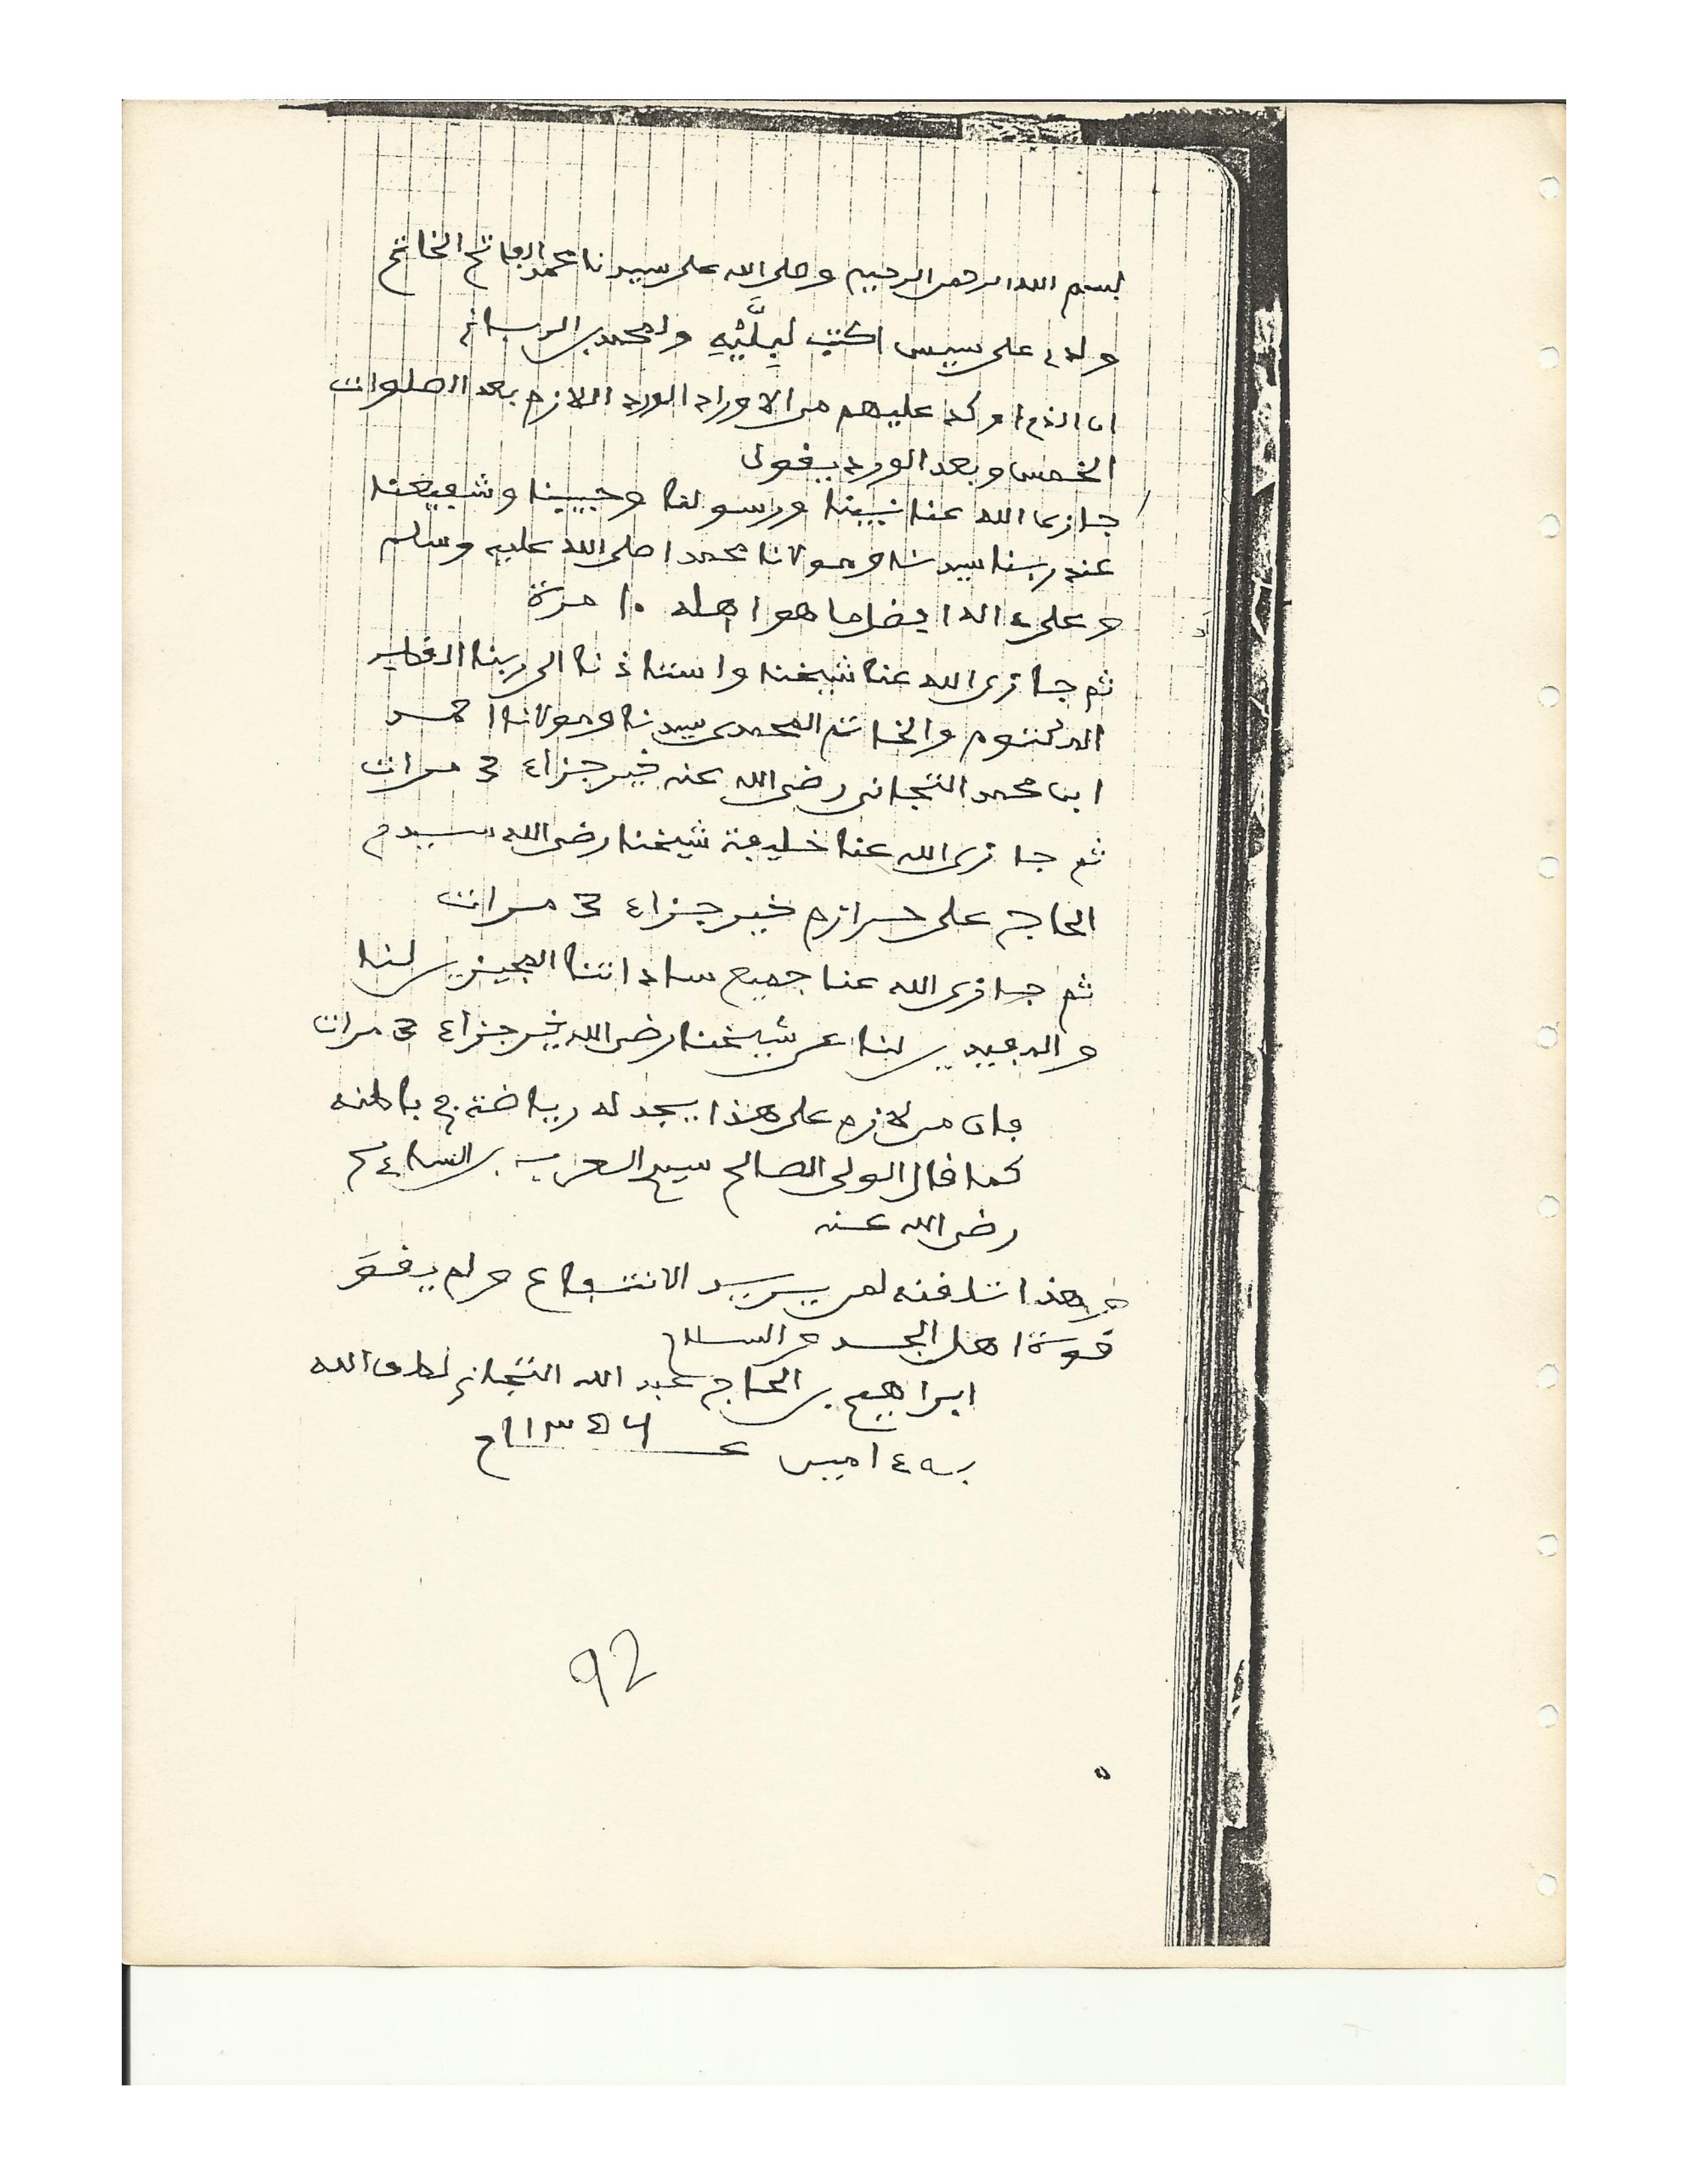 بسم الله الرحمن الرحيم وصلى الله على سيدنا محمد الفاتح الخاتم
ولدي على سيس اكتب لِيِلَّيْهِ ولمحمد بن الرباني
ان الذي اوكد عليهم من الاوراد الورد اللازم بعد الصلوات
الخمس وبعد الورد يقول
جازى الله عنا نبينا ورسولنا وحبيبنا وشفيعنا
عند ربنا سيدنا ومولانا محمدا صلى الله عليه وسلم
وعلىءاله افضل ما هو اهله ١٠ مرة
ثم جازى الله عنا شيخنا واستاذنا الى ربنا القطب
المكتوم والخاتم المحمدى سيدنا ومولانا احمد
ابن محمد التجانى رضى الله عنه خير جزاء 3 مرات
ثم جازى الله عنا خليفة شيخنا رضى الله سيدي
الحاج على حرازم خير جزاء 3 مرات
ثم جازى الله عنا جميع ساداتنا المجيزين لنا
والمفيدين لنا عن شيخنا رضى الله خير جزاء 3 مرات
فان من لازم على هذا يجد له رياضة في باطنه
كما قال الولى الصالح سيدي العربي بن السائح
رضى الله عنه
وهذا تلقنه لمن يريد الانتفاع ولم يقوَ
قوة اهل الجد والسلام
ابراهيم بن الحاج عبد الله التجاني لطف الله
به ءاميں
92